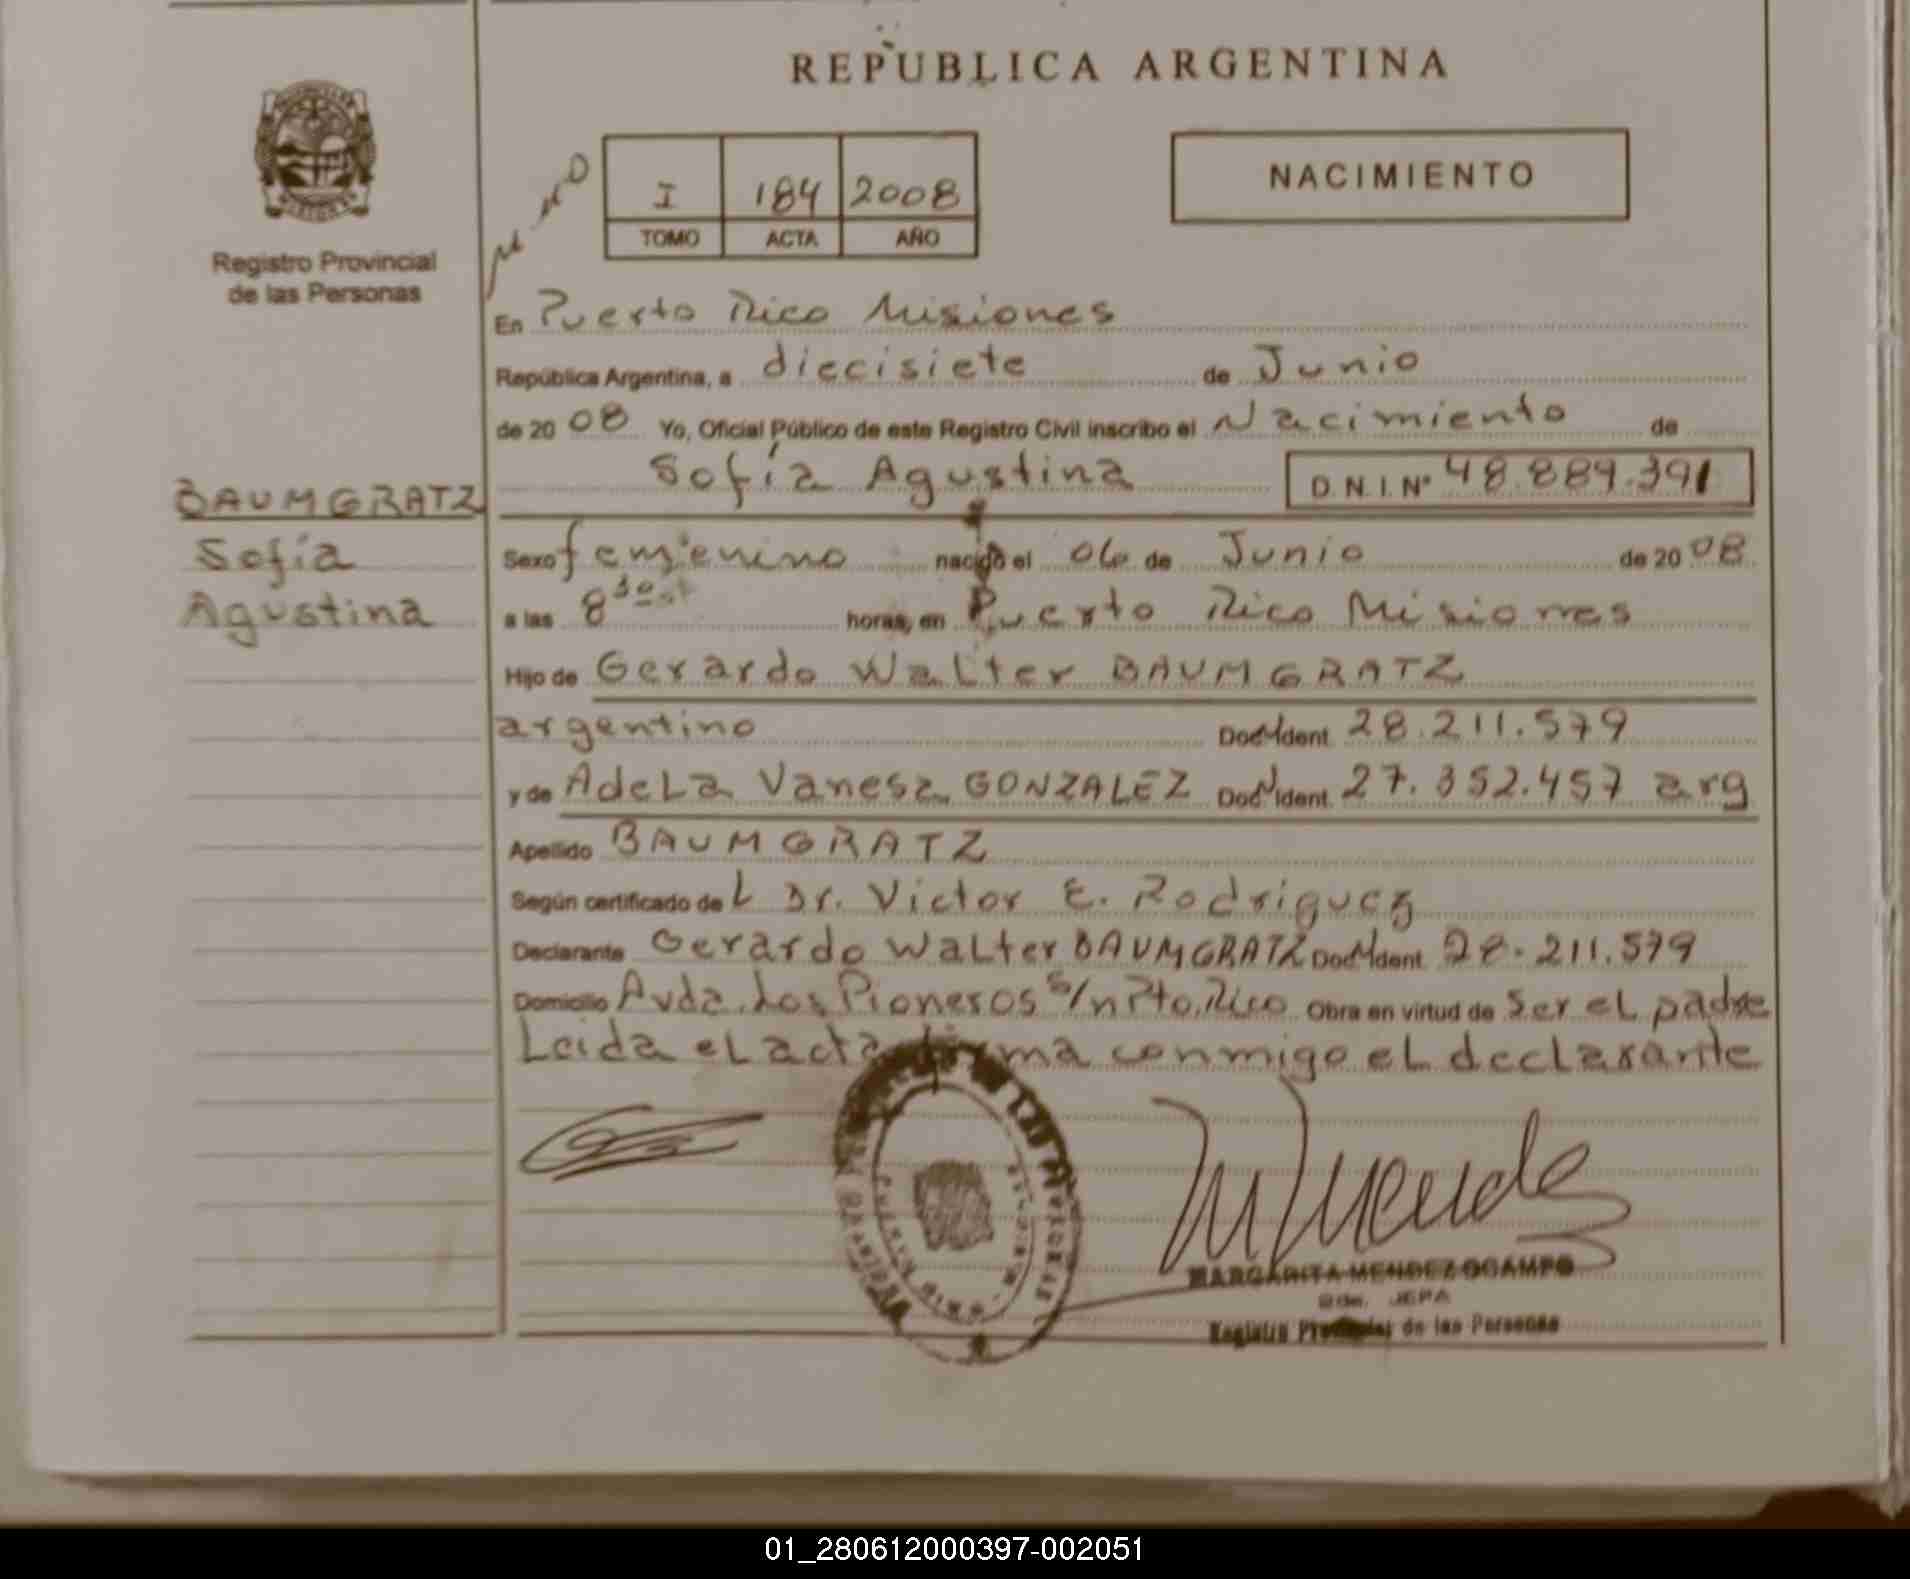 REPUBLICA ARGENTINA
NACIMIENTO
I 184 2008
TOMO ACTA AÑO
Registro Provincial
de las Personas
En Puerto Rico Misiones
República Argentina, a diecisiete de Junio
de 2008 Yo, Oficial Público de este Registro Civil inscribo el Nacimiento de
Sofía Agustina D.N.I. Nº 48.889.391
BAUMGRATZ
Sofía
Agustina
Sexo femenino nacido el 06 de Junio de 2008
a las 8 30 horas, en Puerto Rico Misiones
Hijo de Gerardo Walter BAUMGRATZ
argentino Doc. Ident. 28.211.579
y de Adela Vanesa GONZALEZ Doc. Ident. 27.352.457 arg
Apellido BAUMGRATZ
Según certificado del Dr. Victor E. Rodriguez
Declarante Gerardo Walter BAUMGRATZ Doc. Ident. 28.211.579
Domicilio Avda. Los Pioneros s/n Pto. Rico Obra en virtud de ser el padre
Leida el acta firma conmigo el declarante
MARGARITA MENDEZ OCAMPO
Registro Provincial de las Personas
01_280612000397-002051